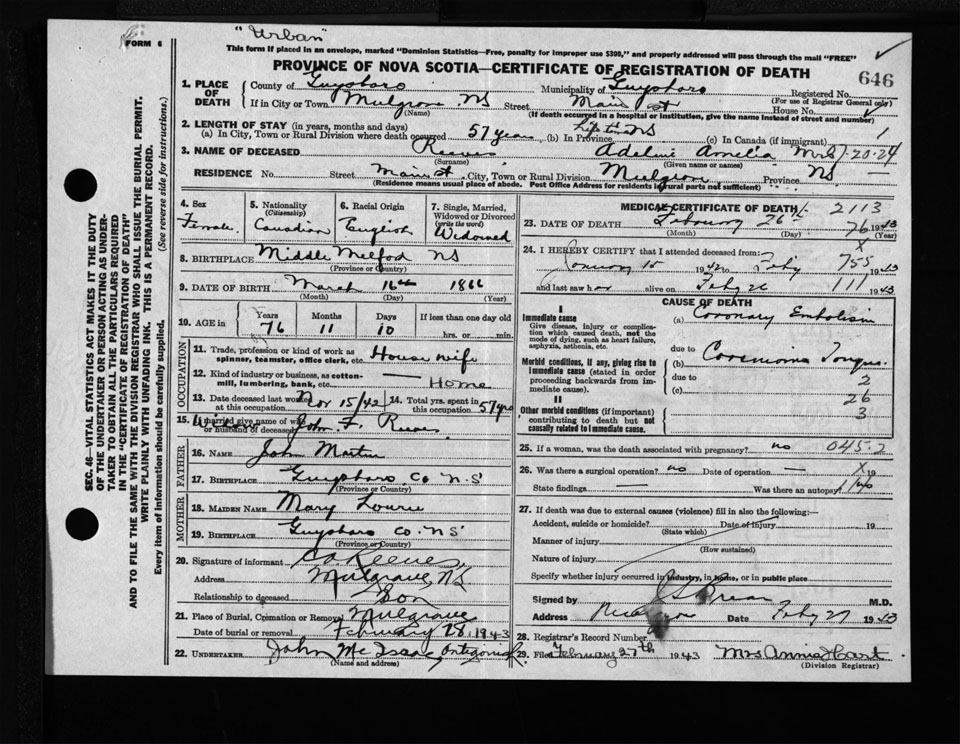 "Urban"
FORM 6
This form if placed in an envelope, marked "Dominion Statistics—Free, penalty for improper use $300," and properly addressed will pass through the mail "FREE"
PROVINCE OF NOVA SCOTIA—CERTIFICATE OF REGISTRATION OF DEATH
646
SEC. 46—VITAL STATISTICS ACT MAKES IT THE DUTY
OF THE UNDERTAKER OR PERSON ACTING AS UNDER-
TAKER TO OBTAIN ALL THE PARTICULARS REQUIRED
IN THE "CERTIFICATE OF REGISTRATION OF DEATH"
AND TO FILE THE SAME WITH THE DIVISION REGISTRAR WHO SHALL ISSUE THE BURIAL PERMIT.
WRITE PLAINLY WITH UNFADING INK. THIS IS A PERMANENT RECORD.
Every item of information should be carefully supplied. (See reverse side for instructions.)
1. PLACE OF DEATH
County of Guysboro Municipality of Guysboro Registered No.
(For use of Registrar General only)
If in City or Town Mulgrave NS Street Main St House No.
(Name) (If death occurred in a hospital or institution, give the name instead of street and number)
2. LENGTH OF STAY (in years, months and days)
(a) In City, Town or Rural Division where death occurred 57 years (b) In Province Life time NS (c) In Canada (if immigrant) 1
3. NAME OF DECEASED Reeves Adeline Amelia Mrs 7-20-24
(Surname) (Given name or names)
RESIDENCE No. Street Main St City, Town or Rural Division Mulgrave Province NS
(Residence means usual place of abode. Post Office Address for residents in rural parts not sufficient)
4. Sex Female
5. Nationality (Citizenship) Canadian
6. Racial Origin English
7. Single, Married, Widowed or Divorced (write the word) Widowed
8. BIRTHPLACE Middle Melford NS
(Province or Country)
9. DATE OF BIRTH March 16th 1866
(Month) (Day) (Year)
10. AGE in Years Months Days If less than one day old
76 11 10 hrs. or min.
OCCUPATION
11. Trade, profession or kind of work as spinner, teamster, office clerk, etc. House wife
12. Kind of industry or business, as cotton-mill, lumbering, bank, etc. Home
13. Date deceased last worked at this occupation Nov 15/42 14. Total yrs. spent in this occupation 57 yrs
15. If married give name of wife or husband of deceased John F. Reeves
FATHER
16. NAME John Martin
17. BIRTHPLACE Guysboro Co N.S
(Province or Country)
MOTHER
18. MAIDEN NAME Mary Lowrie
19. BIRTHPLACE Guysboro Co. NS
(Province or Country)
20. Signature of informant Reeves
Address Mulgrave, NS
Relationship to deceased Son
21. Place of Burial, Cremation or Removal Mulgrave
Date of burial or removal February 28, 1943
22. UNDERTAKER John McIsaac Antigonish
(Name and address)
MEDICAL CERTIFICATE OF DEATH 2113
23. DATE OF DEATH February 26th 26 1943
(Month) (Day) (Year)
24. I HEREBY CERTIFY that I attended deceased from: x
15 1942 to Feby 755 1943
and last saw her alive on Feby 26 111 1943
CAUSE OF DEATH
I
Immediate cause
Give disease, injury or complication which caused death, not the mode of dying, such as heart failure, asphyxia, asthenia, etc.
(a) Coronary Embolism
due to
Morbid conditions, if any, giving rise to immediate cause (stated in order proceeding backwards from immediate cause).
(b) Carcinoma Tongue
due to 2
(c) 26
II
Other morbid conditions (if important) contributing to death but not causally related to immediate cause.
3
25. If a woman, was the death associated with pregnancy? no 045.2
26. Was there a surgical operation? no Date of operation — x 19
State findings — Was there an autopsy? no
27. If death was due to external causes (violence) fill in also the following:—
Accident, suicide or homicide? Date of injury 19
(State which)
Manner of injury
(How sustained)
Nature of injury
Specify whether injury occurred in industry, in home, or in public place
Signed by M.D.
Address Date Feby 27 1943
28. Registrar's Record Number
29. Filed February 27th 1943 Mrs Annie Hart
(Division Registrar)